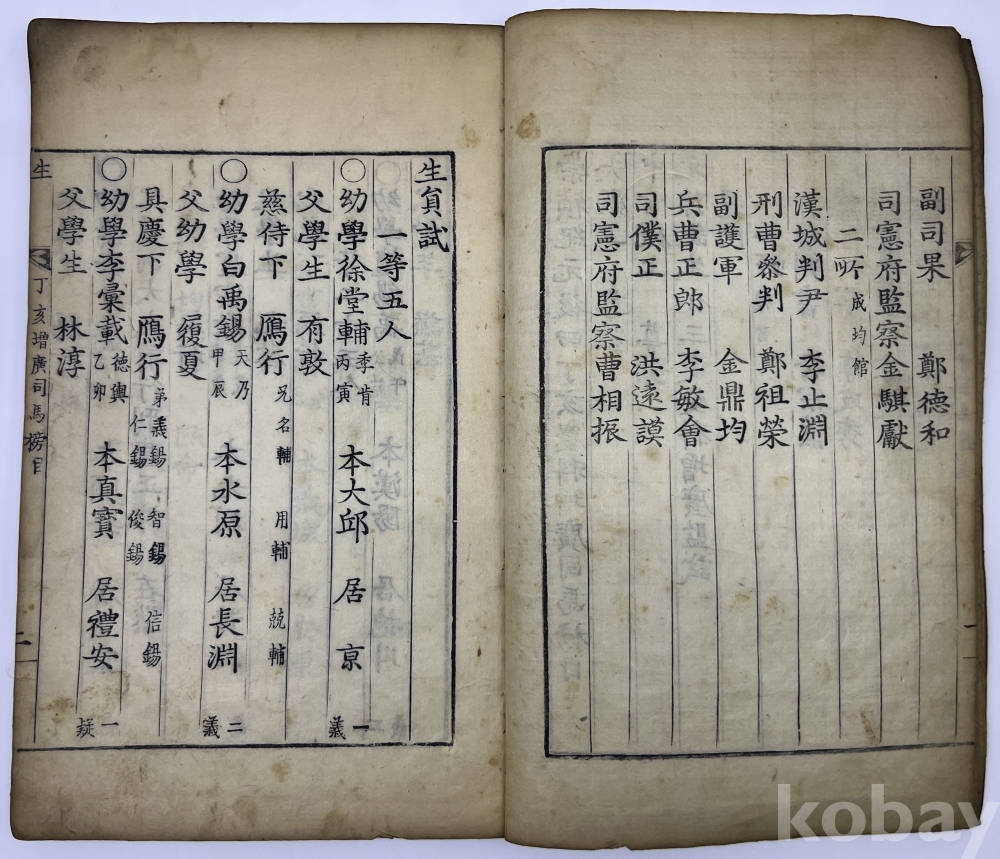 副司果 鄭德和
司憲府監察金騏獻
二所 成均館
漢城判尹 李止淵
刑曹參判 鄭祖榮
副護軍 金鼎均
兵曹正郎 李敏會
司僕正 洪遠謨
司憲府監察曹相振
一
生員試
一等五人
○幼學徐堂輔 季肯 丙寅 本大邱 居京 一義
父學生 有敦
慈侍下 鴈行 兄名輔 用輔 兢輔
○幼學白禹錫 天乃 甲辰 本水原 居長淵 二義
父幼學 履夏
具慶下 鴈行 弟義錫 仁錫 智錫 俊錫 信錫
○幼學李彙載 德輿 乙卯 本真寶 居禮安 一疑
父學生 林淳
生 丁亥增廣司馬榜目 二
kobay